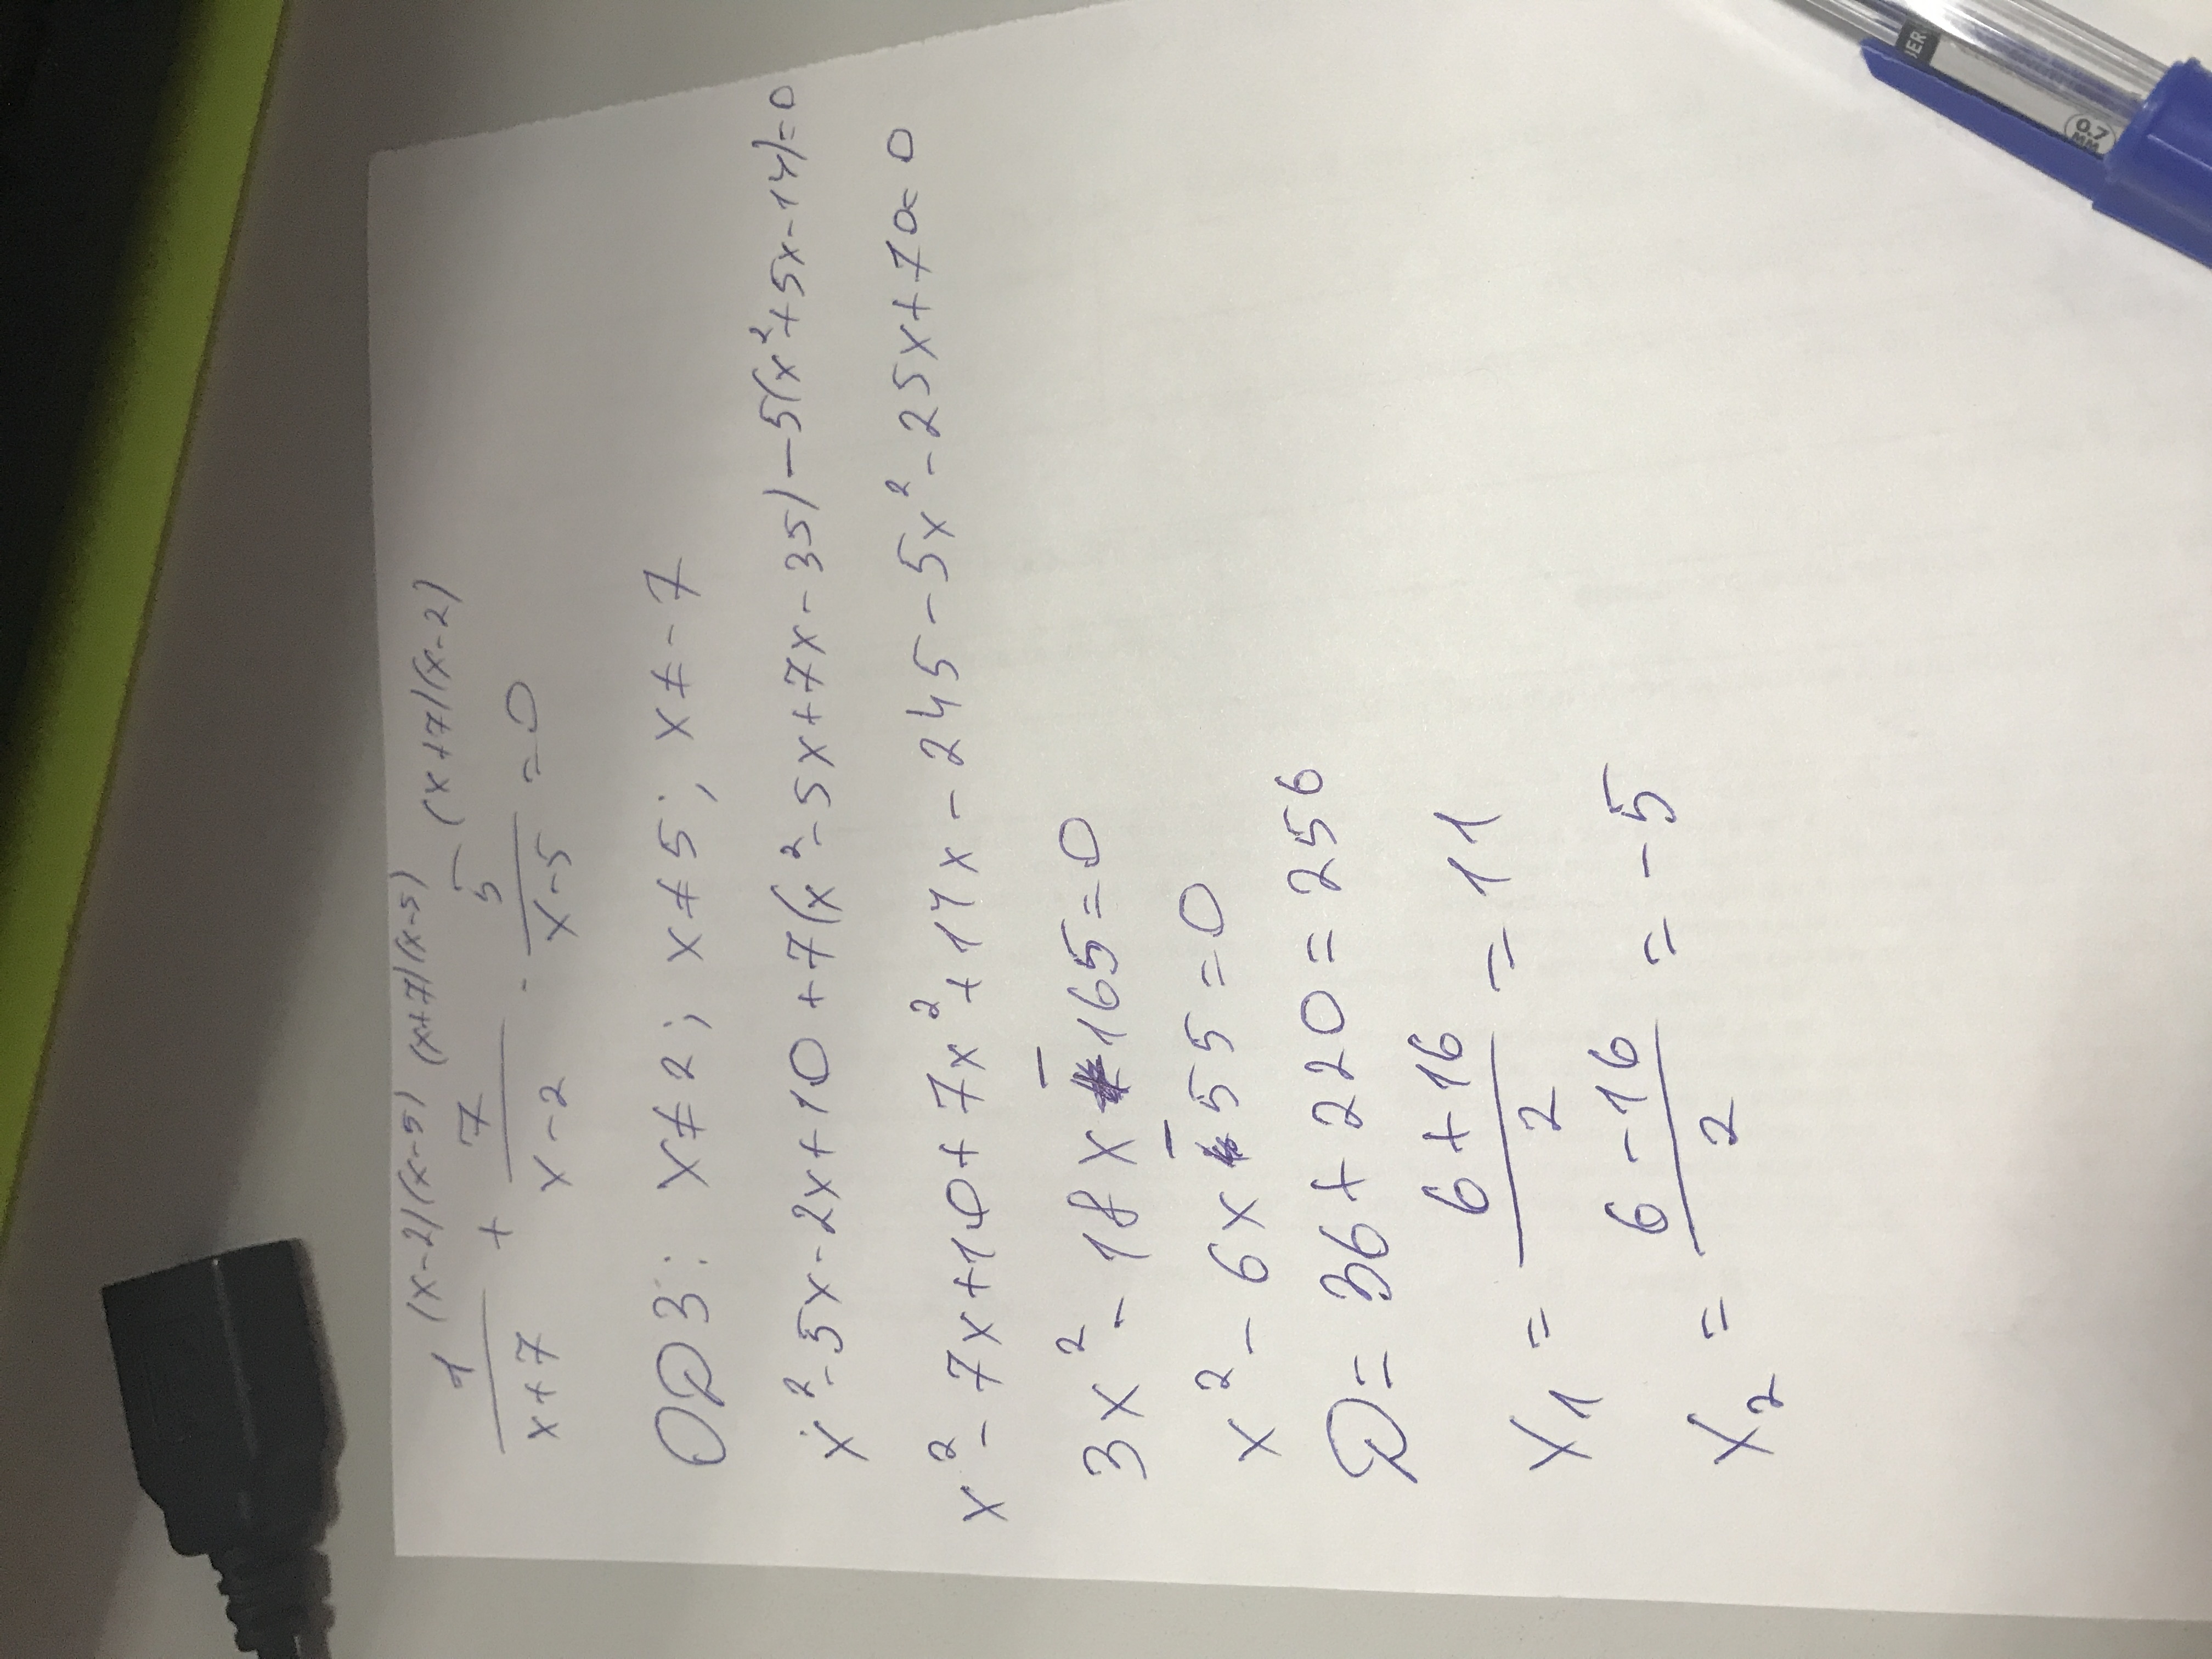 (x-2)(x-5) (x+7)(x-5) (x+7)(x-2)
1/(x+7) + 7/(x-2) - 5/(x-5) = 0
ОДЗ: x≠2; x≠5; x≠-7
x²-5x-2x+10+7(x²-5x+7x-35)-5(x²+5x-14)=0
x²-7x+10+7x²+14x-245-5x²-25x+70=0
3x²-18x-165=0
x²-6x-55=0
D=36+220=256
x₁ = (6+16)/2 = 11
x₂ = (6-16)/2 = -5
0.7
MM